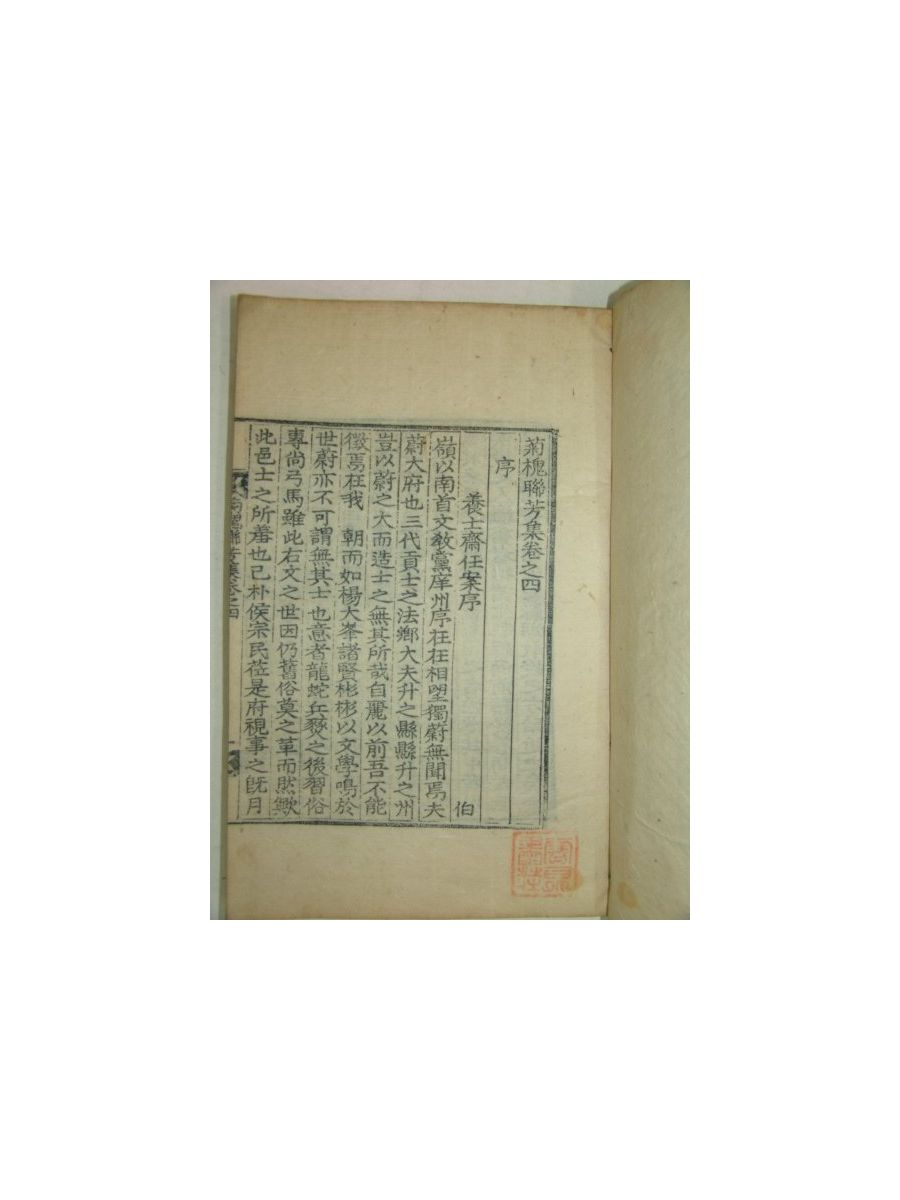 菊槐聯芳集卷之四
序
養士齋任案序
伯
嶺以南首文教黨庠州序在在相望獨蔚無聞焉夫
蔚大府也三代貢士之法鄉大夫升之縣縣升之州
豈以蔚之大而造士之無其所哉自麗以前吾不能
徵焉在我 朝而如楊大峯諸賢彬彬以文學鳴於
世蔚亦不可謂無其士也意者龍蛇兵燹之後習俗
專尚弓馬雖此右文之世因仍舊俗莫之革而然歟
此邑士之所羞也已朴侯宗民莅是府視事之旣月